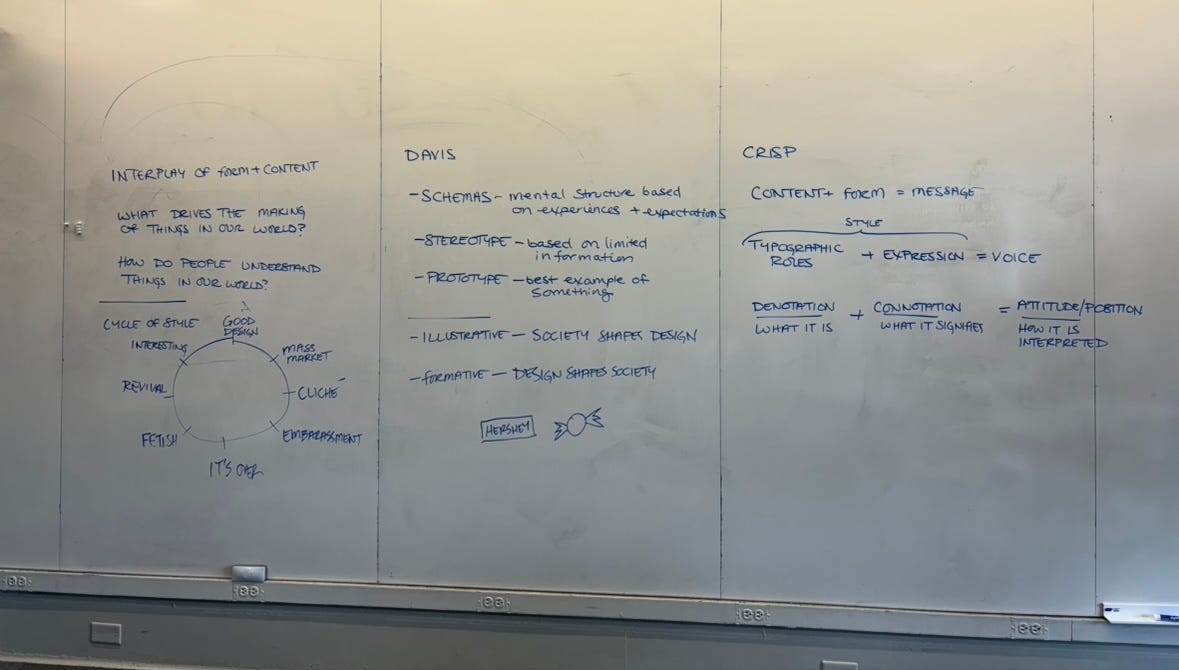 INTERPLAY OF FORM + CONTENT
WHAT DRIVES THE MAKING
OF THINGS IN OUR WORLD?
HOW DO PEOPLE UNDERSTAND
THINGS IN OUR WORLD?
CYCLE OF STYLE
GOOD
DESIGN
MASS
MARKET
CLICHÉ
EMBARASSMENT
IT'S OVER
FETISH
REVIVAL
INTERESTING
DAVIS
- SCHEMAS - mental structure based
on experiences + expectations
- STEREOTYPE - based on limited
information
- PROTOTYPE - best example of
something
- ILLUSTRATIVE - SOCIETY SHAPES DESIGN
- FORMATIVE - DESIGN SHAPES SOCIETY
HERSHEY
CRISP
CONTENT + FORM = MESSAGE
STYLE
TYPOGRAPHIC
ROLES
+ EXPRESSION = VOICE
DENOTATION
WHAT IT IS
+
CONNOTATION
WHAT IT SIGNIFIES
= ATTITUDE/POSITION
HOW IT IS
INTERPRETED